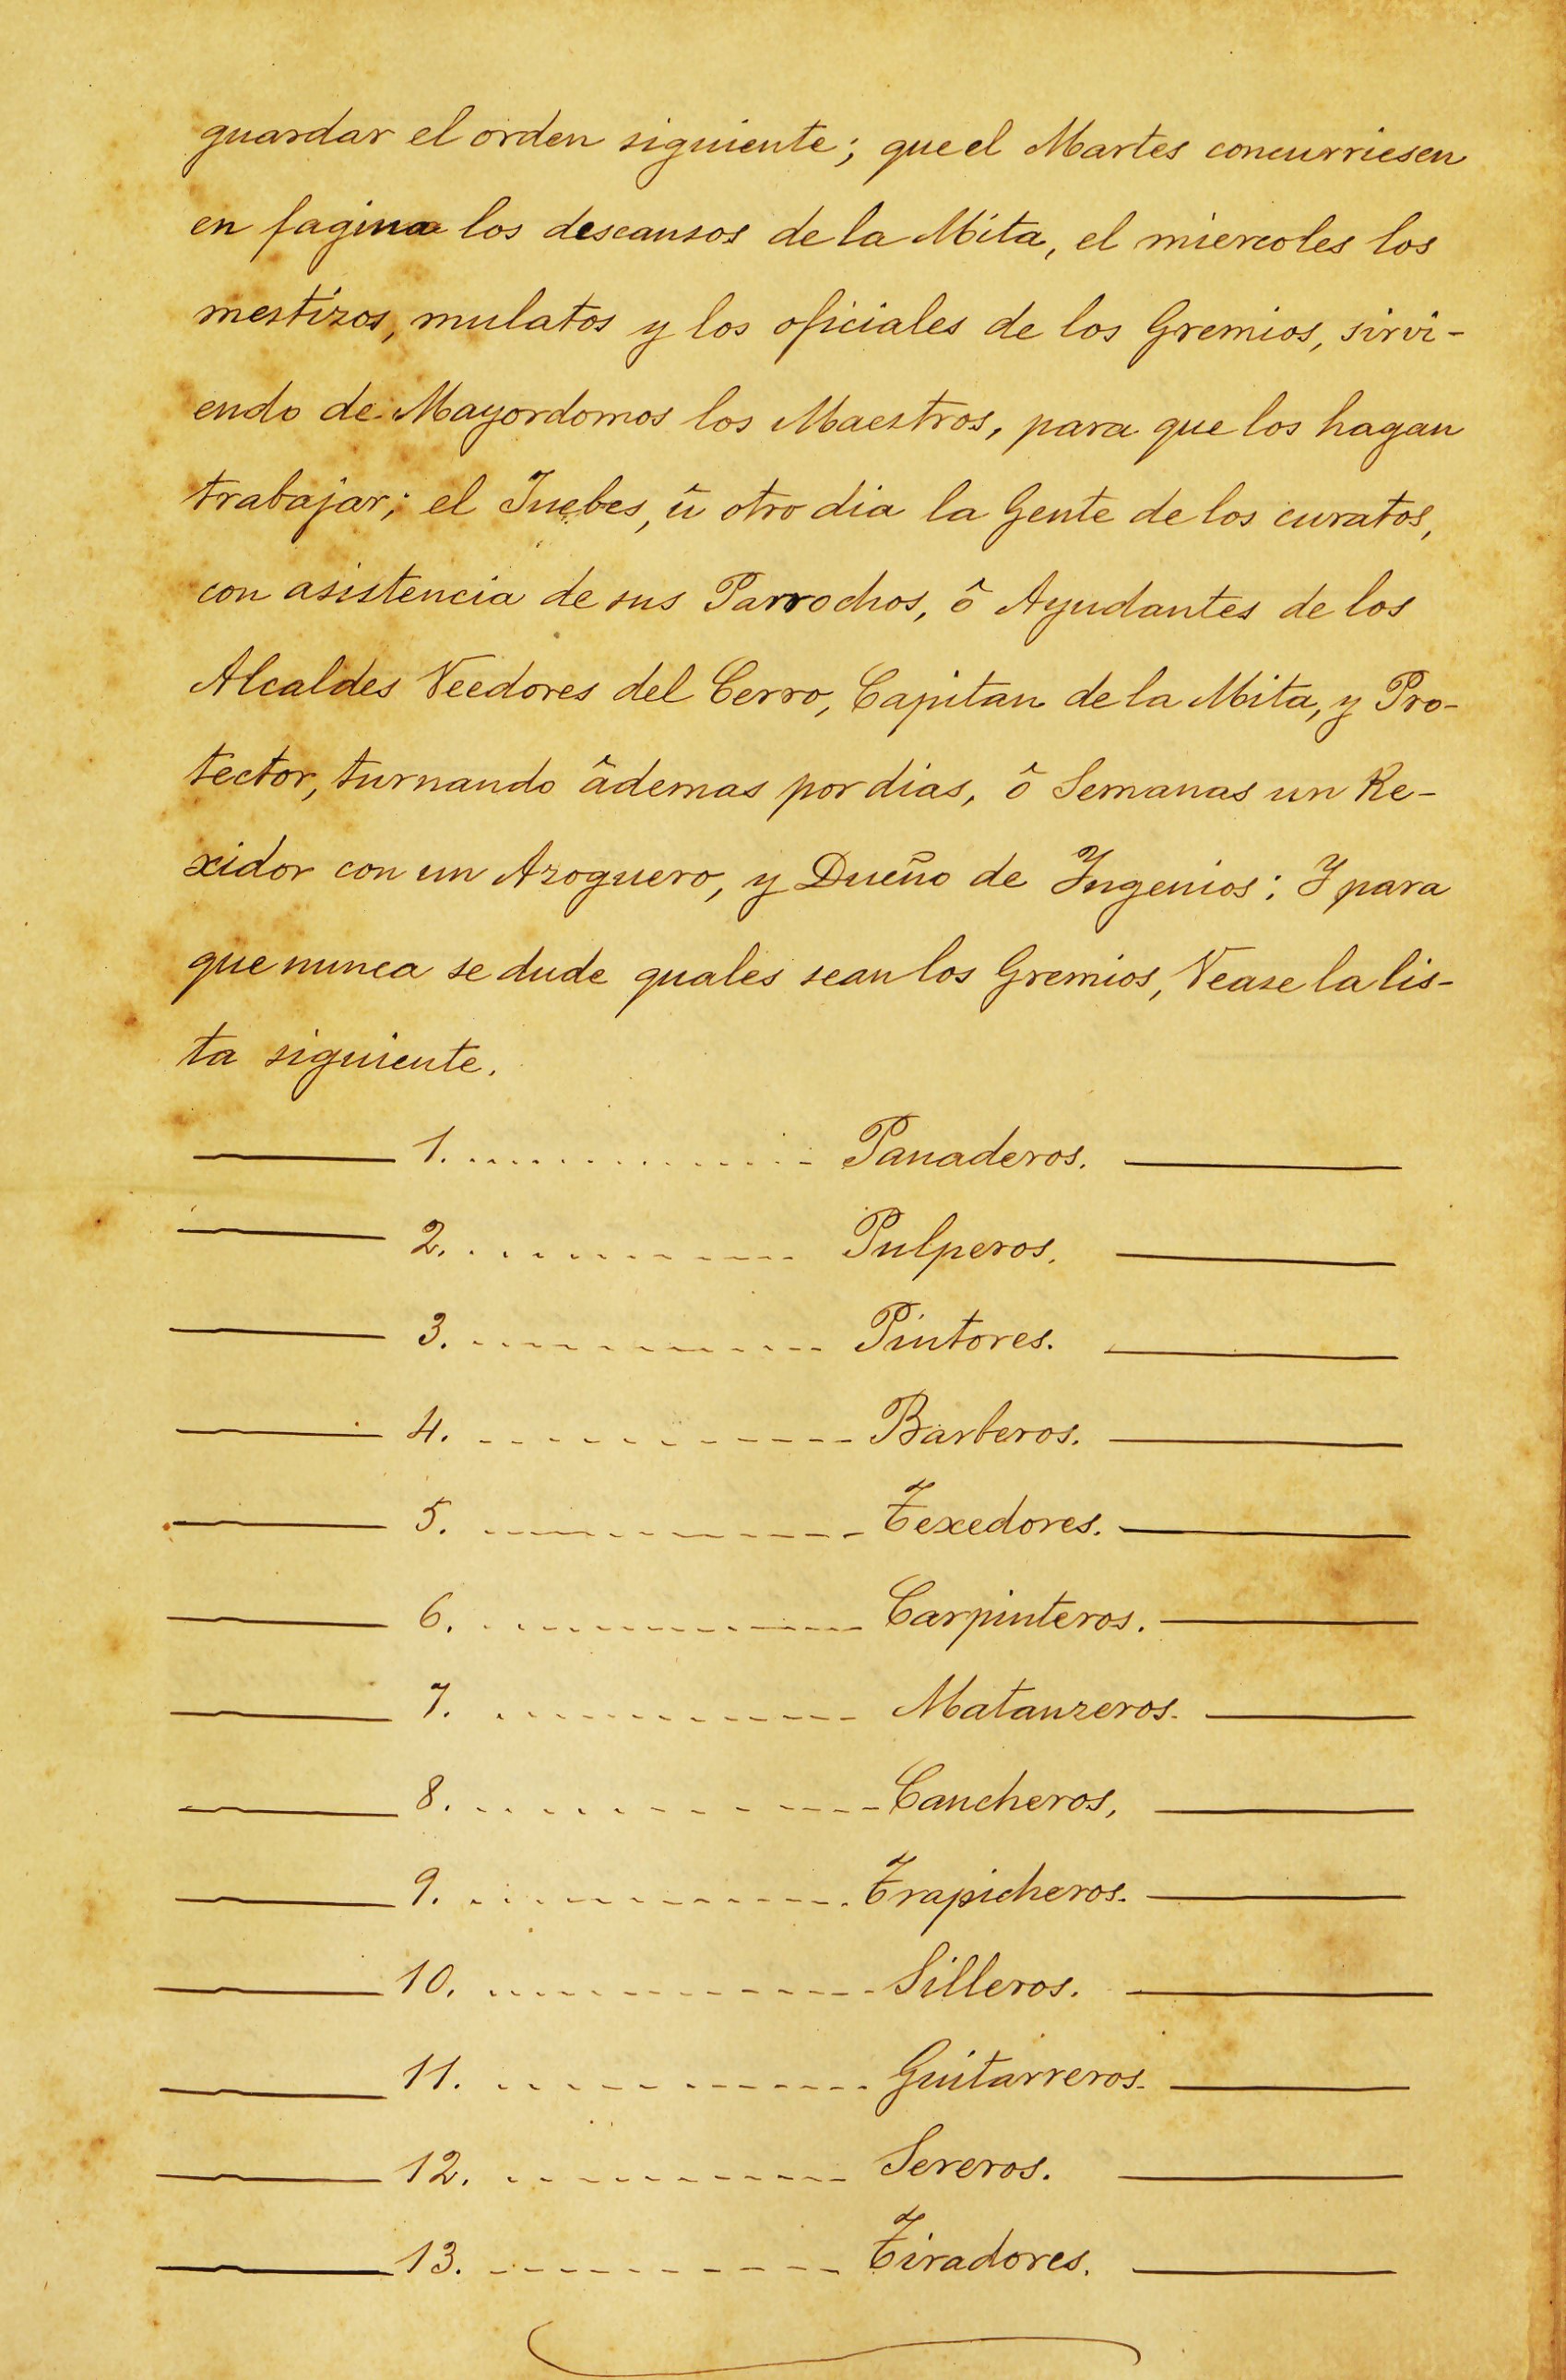 guardar el orden siguiente; que el Martes concurriesen
en fagina los descansos de la Mita, el miercoles los
mestizos, mulatos y los oficiales de los Gremios, sirvi-
endo de Mayordomos los Maestros, para que los hagan
trabajar; el Juebes, û otro dia la Gente de los curatos,
con asistencia de sus Parrochos, ô Ayudantes de los
Alcaldes Veedores del Cerro, Capitan de la Mita, y Pro-
tector, turnando âdemas por dias, ô Semanas un Re-
xidor con un Azoguero, y Dueño de Ingenios: Y para
que nunca se dude quales sean los Gremios, Vease la lis-
ta siguiente.
1. Panaderos.
2. Pulperos.
3. Pintores.
4. Barberos.
5. Texedores.
6. Carpinteros.
7. Matanzeros.
8. Cancheros,
9. Trapicheros.
10. Silleros.
11. Guitarreros.
12. Sereros.
13. Tiradores.